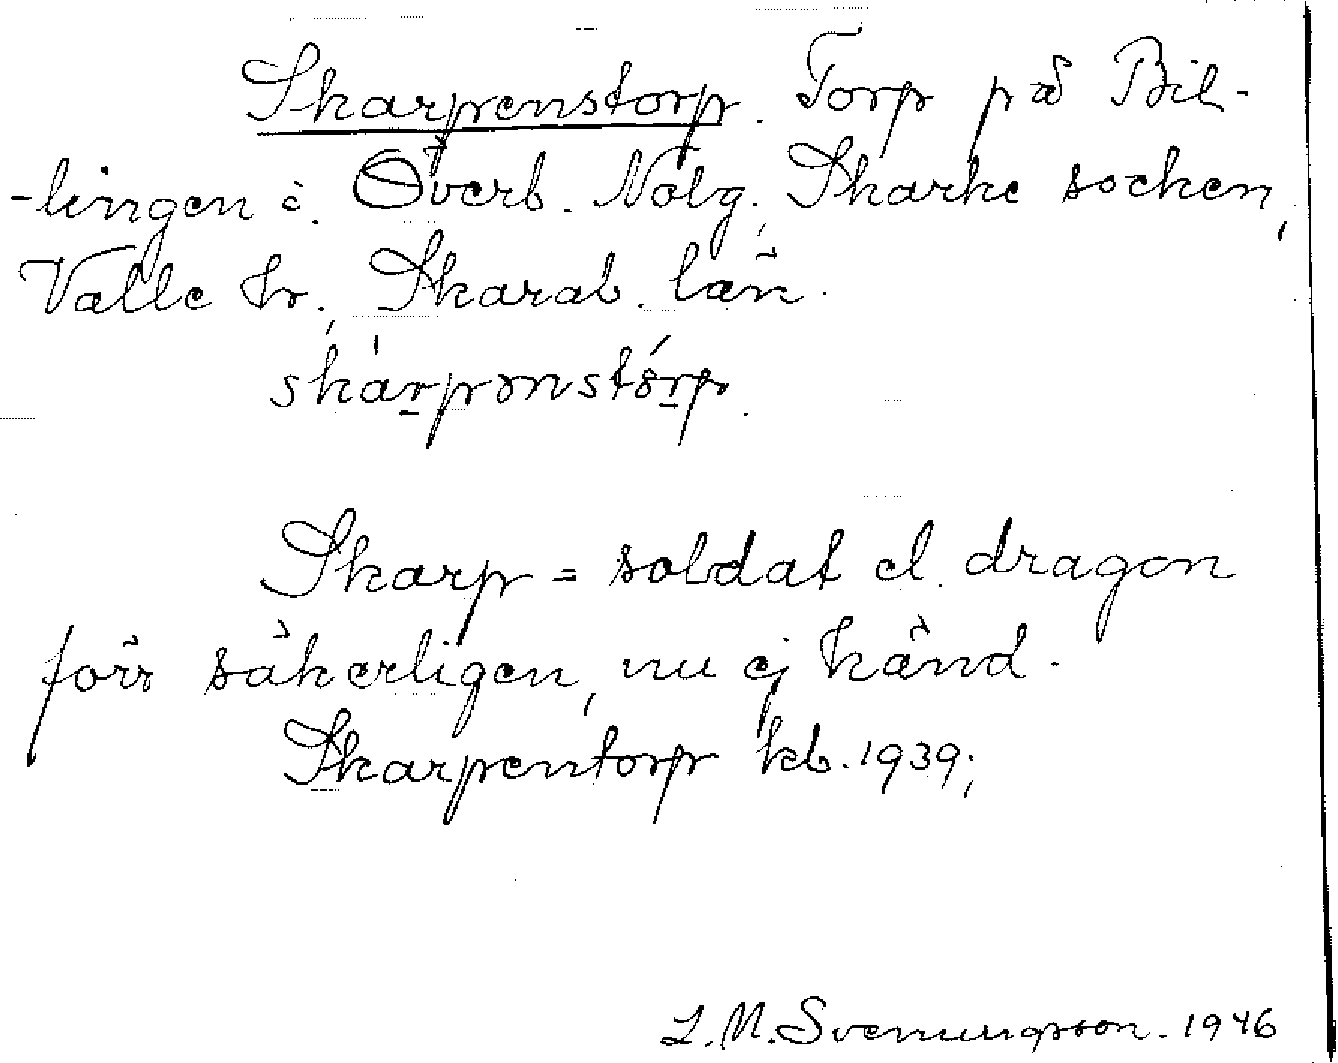 Skarpenstorp. Torp på Bil-
-lingen i. Överb. Nolg. Skarke socken,
Valle hr, Skarab. län.
skárpənstórp.
Skarp = soldat el. dragon
förr säkerligen, nu ej känd.
Skarpentorp kb. 1939;
L.M. Svenungsson. 1946